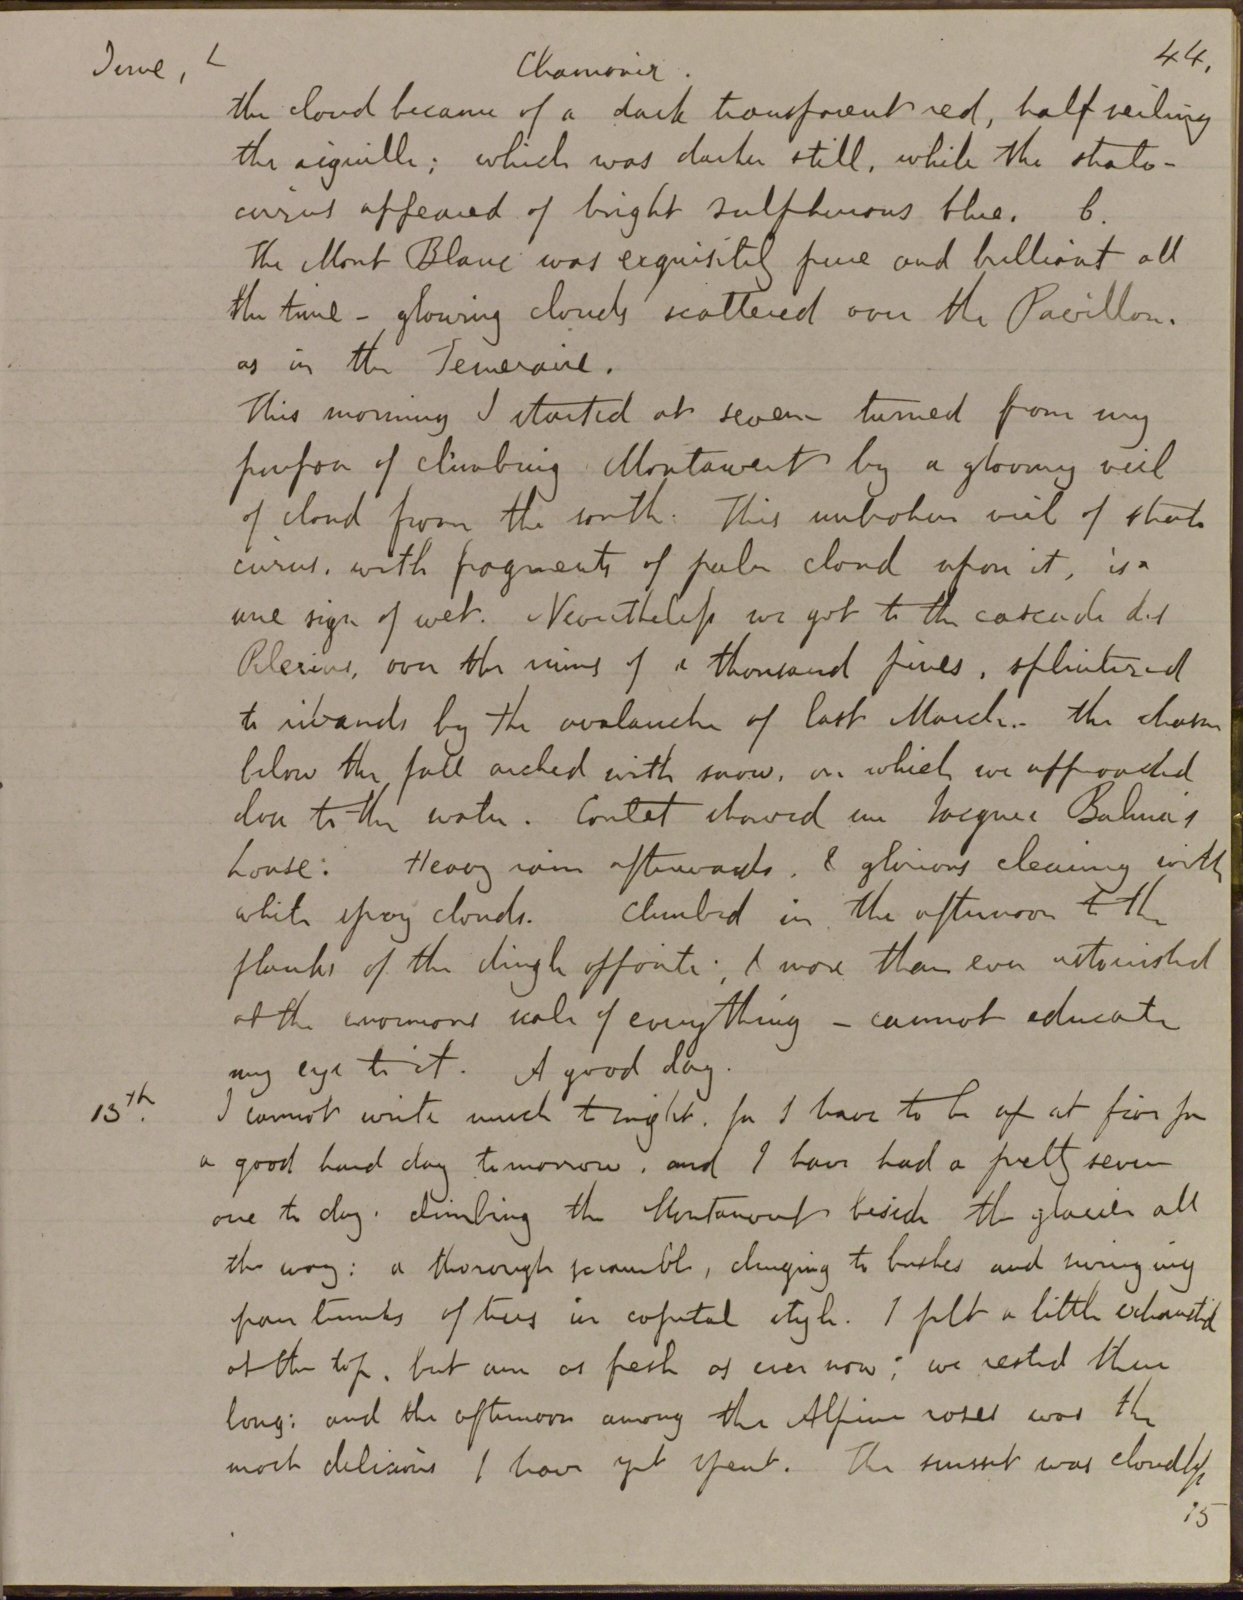 June, Chamonix. 44.
the cloud became of a dark transparent red, half veiling
the aiguille; which was darker still, while the strato-
cirrus appeared of bright sulphurous blue. 6.
The Mont Blanc was exquisitely pure and brilliant all
the time - glowing clouds scattered over the Pavillon.
as in the Temeraire.
This morning I started at seven - turned from my
purpose of climbing Montanvert by a gloomy veil
of cloud from the south. This unbroken veil of strato
cirrus, with fragments of paler cloud upon it, is a
sure sign of wet. Nevertheless we got to the cascade des
Pelerins, over the ruins of a thousand pines, splintered
to ribands by the avalanche of last March - the chasm
below the fall arched with snow, on which we approached
close to the water. Coutet showed me Jacques Balma's
house: Heavy rain afterwards, & glorious clearing with
white spray clouds. Climbed in the afternoon to the
flanks of the dingle opposite; & more than ever astonished
at the enormous scale of everything - cannot educate
my eye to it. A good day.
13th. I cannot write much tonight, for I have to be up at five for
a good hard day tomorrow, and I have had a pretty severe
one to day, climbing the Montanvert beside the glacier all
the way: a thorough scramble, clinging to bushes and swinging
from trunks of trees in capital style. I felt a little exhausted
at the top, but am as fresh as ever now; we rested there
long: and the afternoon among the Alpine roses was the
most delicious I have yet spent. The sunset was cloudless
15